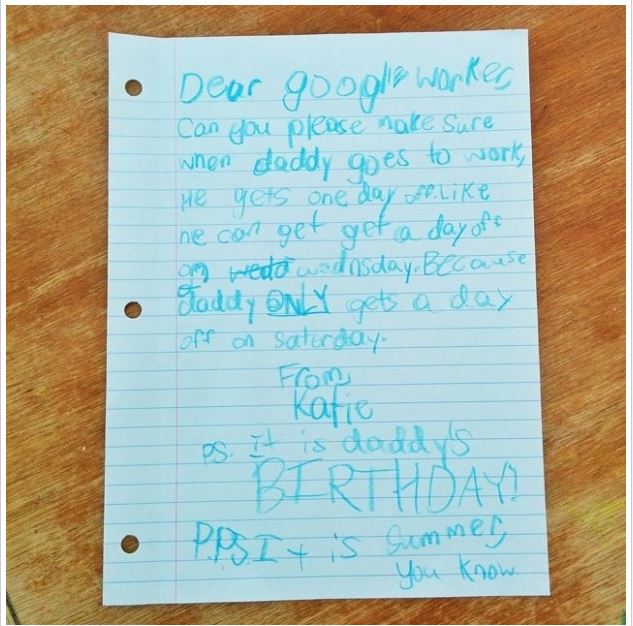 Dear google worker,
Can you please make sure
when daddy goes to work,
He gets one day off. Like
he can get get a day off
on wedo wednsday. Because
daddy ONLY gets a day
off on saterday.
From,
Katie
PS. It is daddy's
BIRTHDAY!
P.P.S. It is summer,
you know